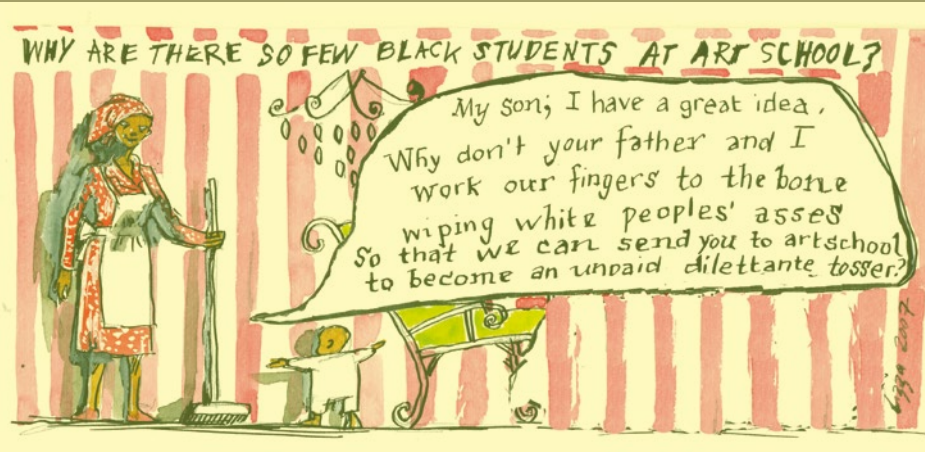 WHY ARE THERE SO FEW BLACK STUDENTS AT ART SCHOOL?
My son, I have a great idea.
Why don't your father and I
work our fingers to the bone
wiping white peoples' asses
So that we can send you to artschool
to become an unpaid dilettante tosser?
2007